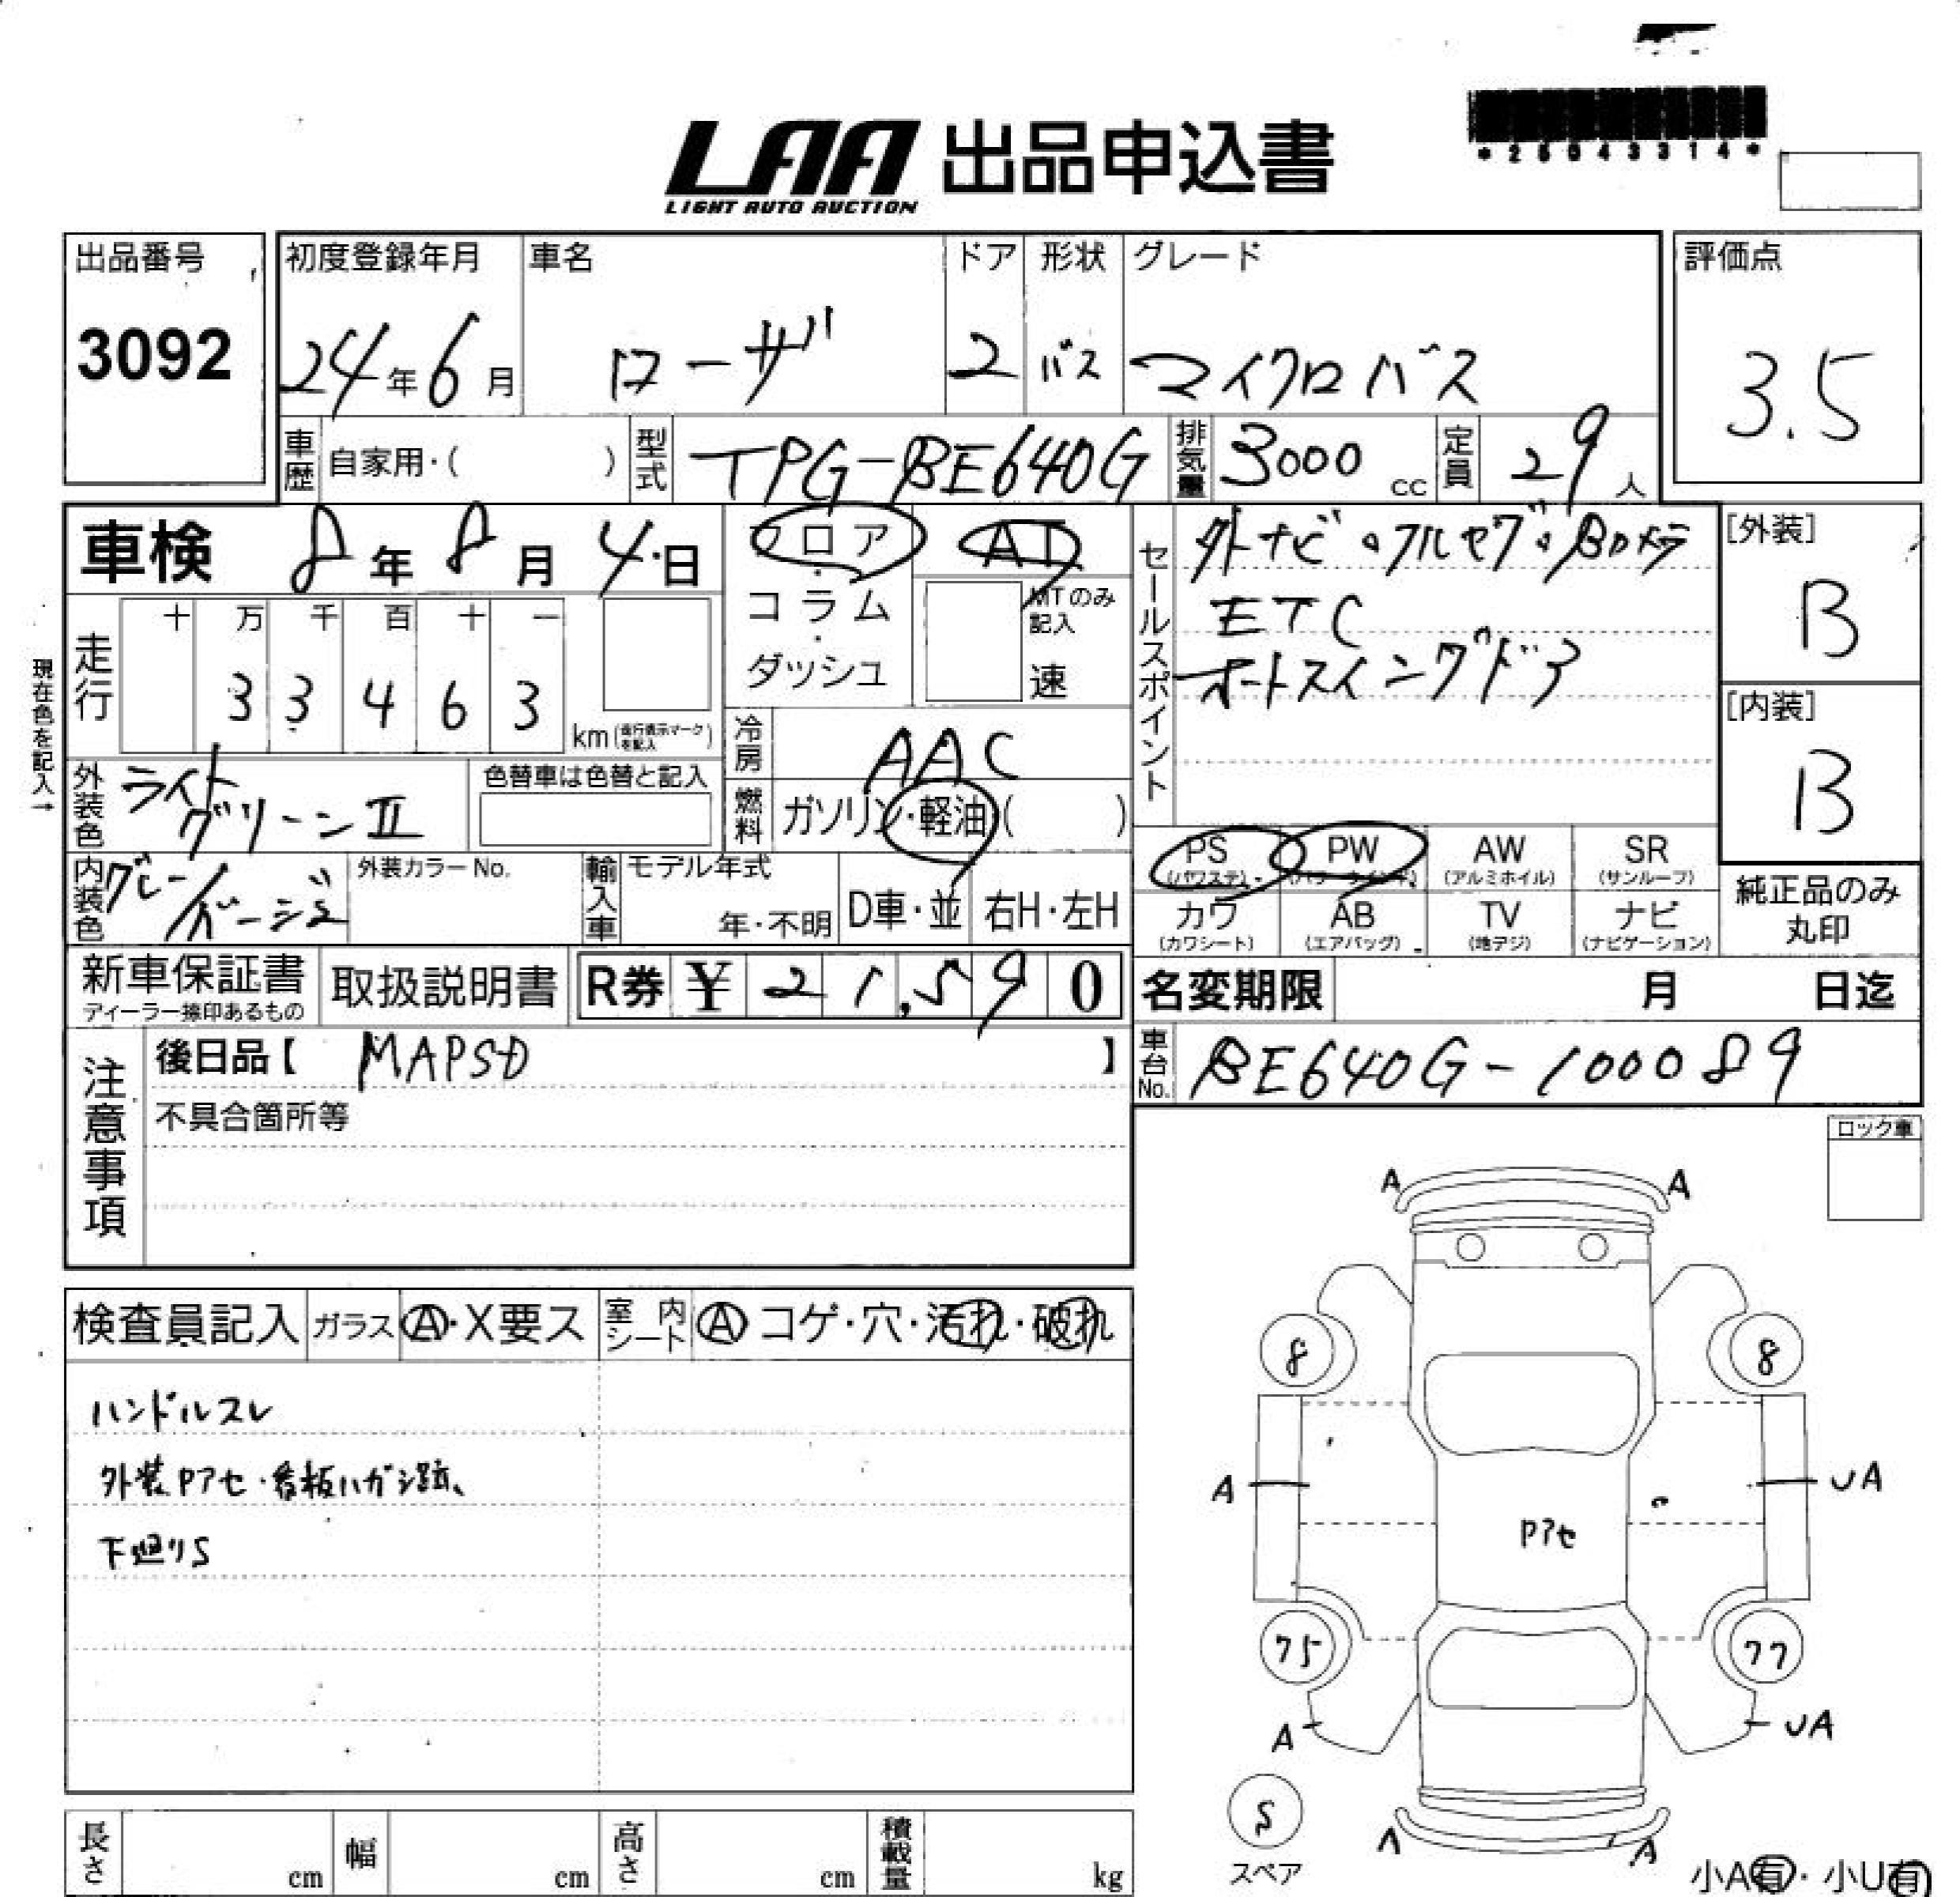 LAA 出品申込書
LIGHT AUTO AUCTION
*25043314*
出品番号
3092
初度登録年月
24年6月
車名
ローザ
ドア
2
形状
バス
グレード
マイクロバス
評価点
3.5
車歴 自家用・( )
型式 TPG-BE640G
排気量 3000 cc
定員 29人
車検 8年8月4日
フロア・コラム・ダッシュ
AT
MTのみ記入
速
セールスポイント
外ナビ・フルセグ・Bカメラ
ETC
オートスイングドア
[外装]
B
[内装]
B
現在色を記入→
走行
十 万 千 百 十 一
3 3 4 6 3
km(走行表示マークを記入)
冷房 AAC
燃料 ガソリン・軽油( )
外装色 ライトグリーンⅡ
色替車は色替と記入
内装色 グレー/ベージュ
外装カラーNo.
輸入車
モデル年式
年・不明
D車・並
右H・左H
PS (パワステ)
PW (パワーウインド)
AW (アルミホイル)
SR (サンルーフ)
カワ (カワシート)
AB (エアバッグ)
TV (地デジ)
ナビ (ナビゲーション)
純正品のみ丸印
新車保証書
ディーラー捺印あるもの
取扱説明書
R券 ¥ 21,590
名変期限 月 日迄
注意事項
後日品【 MAPSD 】
不具合箇所等
車台No. BE640G-1000089
ロック車
検査員記入
ガラス A・X要ス
室内シート A コゲ・穴・汚れ・破れ
ハンドルスレ
外装Pアセ・看板ハガシ跡、
下廻りS
A A
8 8
A UA
Pアセ
75 77
A UA
S
スペア
A A
小A有・小U有
長さ cm
幅 cm
高さ cm
積載量 kg